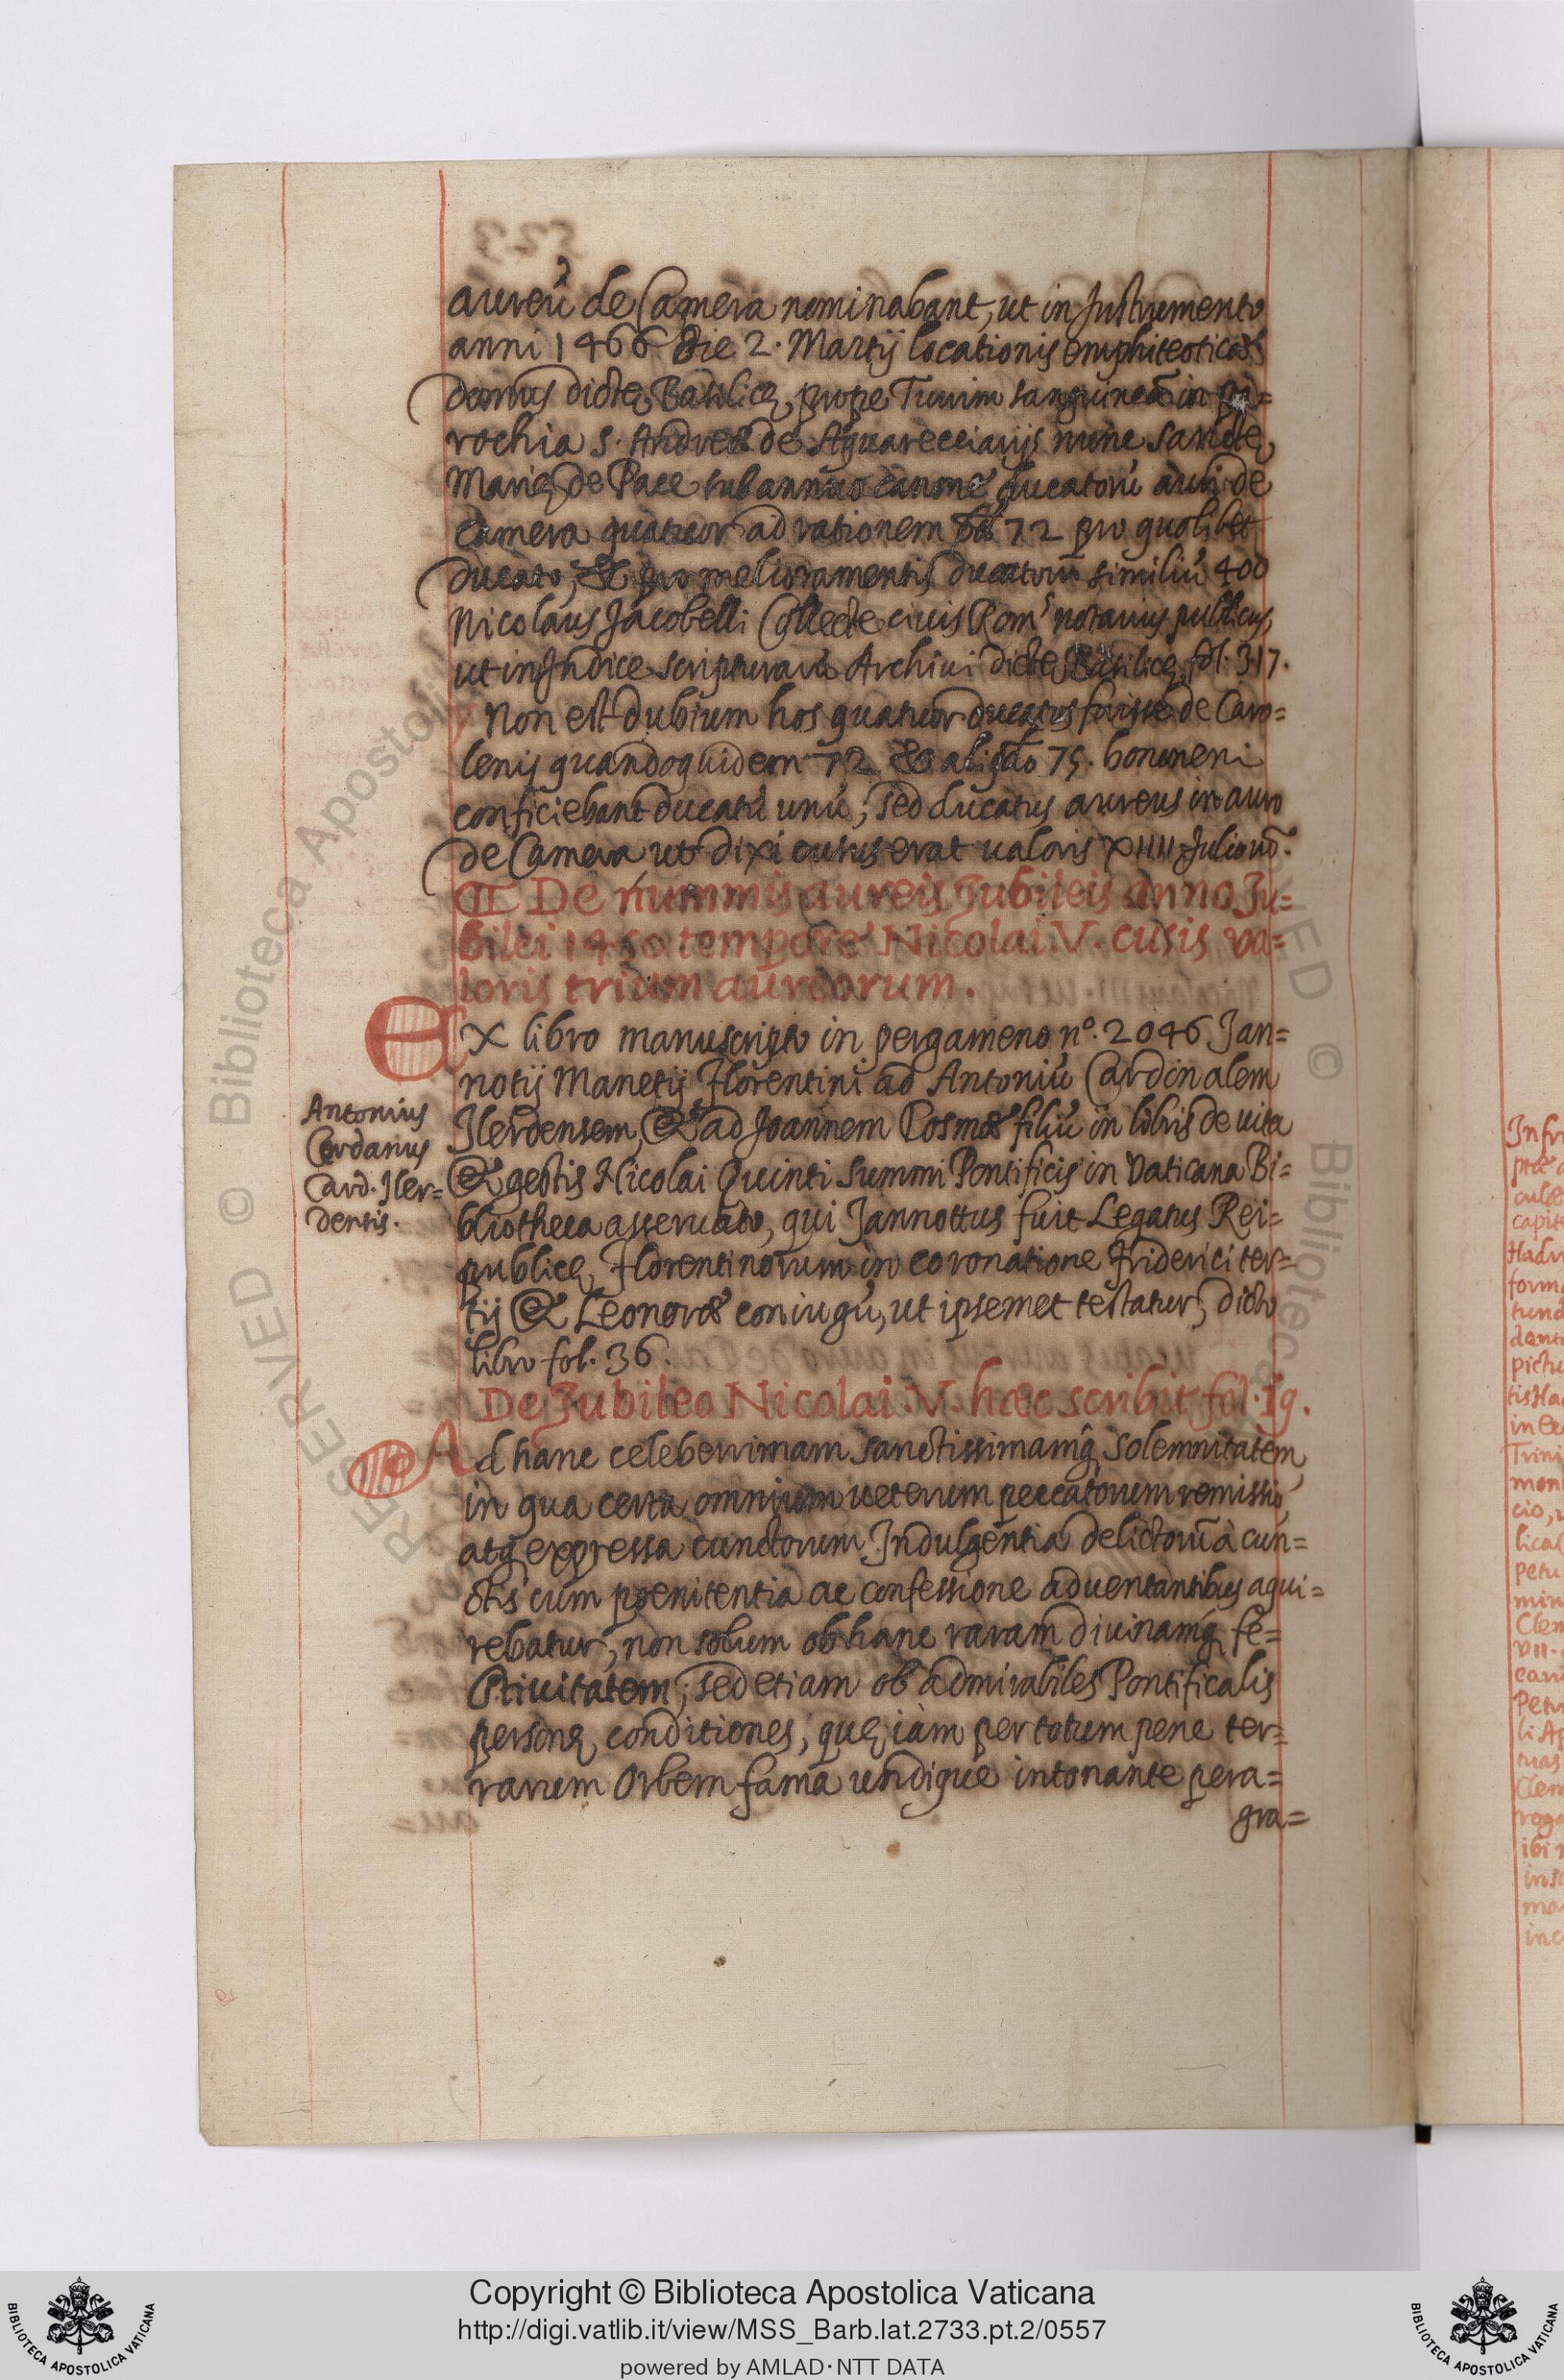 aureũ de Camera nominabant, ut in Instrumento
anni 1466 die 2. Martij locationis emphiteoticæ
domus dictę Basilicę, prope Turrim sanguineã in pa=
rochia S. Andreæ de Aquarecciarijs nunc sanctę
Marię de Pace sub annuo canone ducatorũ auri de
camera quatuor ad rationem 72 pro quolibet
ducato; & pro melioramentis ducatorũ similiũ 400
Nicolaus Jacobelli Collecte civis Rom.s notarius publicus,
ut in Indice scripturarũ Archiui dictę Basilicę fol. 317.
Non est dubium hos quatuor ducatos fuisse de Caro=
lenis quandoquidem 72 & aliqdo 75. bononeni
conficiebant ducatũ unũ; sed ducatus aureus in auro
de Camera ut dixi cusus erat ualoris XIIII Julionũ.
De nummis aureis Jubileis anno Ju=
bilei 1450 tempore Nicolai .V. cusis va=
loris trium aureorum.
EX libro manuscripto in pergameno nº. 2046 Jan=
notij Manetij Florentini ad Antoniũ Cardinalem
Ilerdensem, & ad Joannem Cosmæ filiũ in libris de uita
& gestis Nicolai Quinti Summi Pontificis in Vaticana Bi=
bliotheca asseruato, qui Jannottus fuit Legatus Rei=
publicę Florentinorum in coronatione Friderici ter=
tij & Leonoræ coniugũ, ut ipsemet testatur, dicto
libro fol. 36.
Antonius
Cerdanus
Card. Iler=
densis.
De Jubileo Nicolai .V. hæc scribit fol. 19.
Ad hanc celeberrimam sanctissimamq̃ solemnitatem,
in qua certa omnium ueterum peccatorum remissio
atq̃ expressa cunctorum Indulgentia delictorũ à cun=
ctis cum poenitentia ac confessione aduentantibus aqui=
rebatur, non solum ob hanc raram diuinamq̃ fe=
stiuitatem; sed etiam ob admirabiles Pontificalis
personę conditiones, quę iam per totum pene ter=
rarum Orbem fama undique intonante pera=
gra=
Copyright © Biblioteca Apostolica Vaticana
http://digi.vatlib.it/view/MSS_Barb.lat.2733.pt.2/0557
powered by AMLAD·NTT DATA